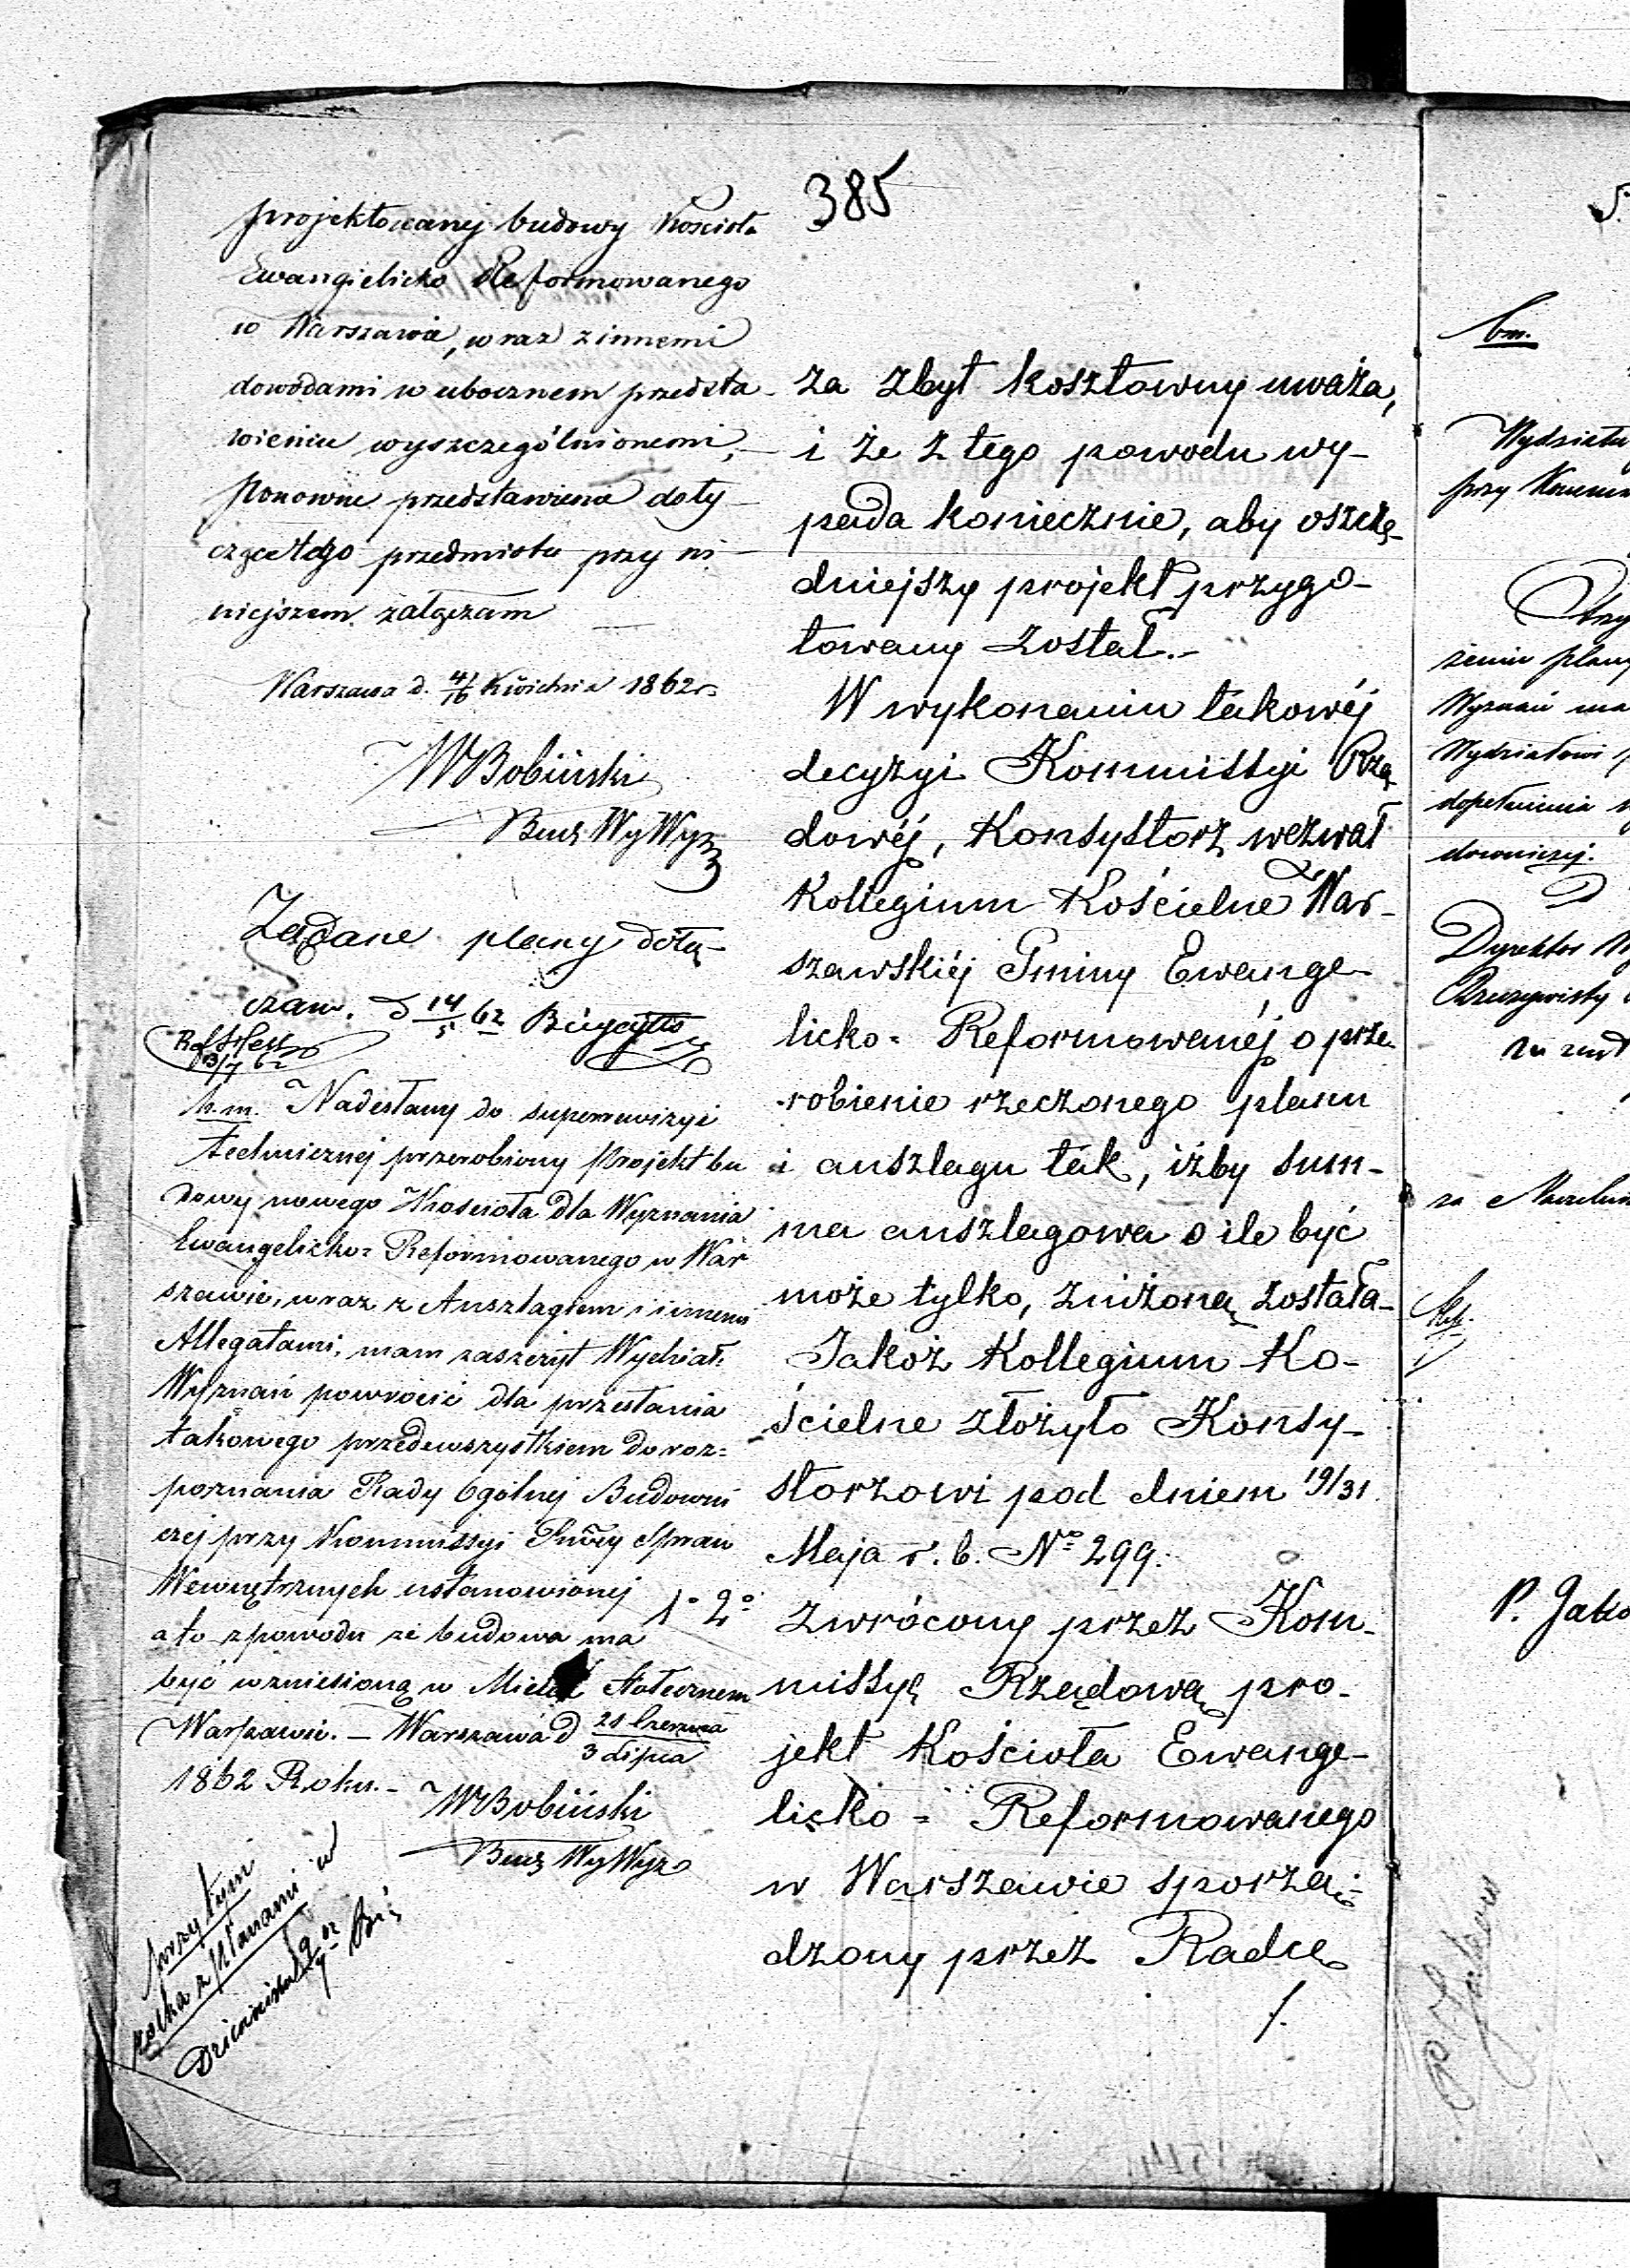 385
projektowanej budowy Kościoła
Ewangielicko Reformowanego
w Warszawie, wraz z innemi
dowodami w ubocznem przedsta-
wieniu wyszczególnionemi,
ponownie przedstawienia doty-
czące tego przedmiotu przy ni-
niejszem załączam
Warszawa d. 4/16 Kwietnia 1862 r.
WBobiński
Bud WyWyz
Żądane plany dołą-
czam. D 14/5 62
13/7 62
b.m. Nadesłany do superrewizyi
technicznej przerobiony Projekt bu
dowy nowego Kościoła dla Wyznania
Ewangelicko=Reformowanego w War
szawie, wraz z Anszlagiem i innemi
Allegatami, mam zaszczyt Wydział.
Wyznań powrócić dla przesłania
takowego przedewszystkiem do roz=
poznania Rady Ogólnej Budowni
czej przy Kommissyi Spraw
Wewnętrznych ustanowionej
a to z powodu że budowa ma
być wzniesioną w Mieście Stołecznem
Warszawie. – Warszawa d 21 Czerwca
3 Lipca
1862 Roku. –
WBobiński
Bud WyWyz
przy tym
rolka z planami w
za zbyt kosztowny uważa,
i że z tego powodu wy-
pada koniecznie, aby oszczę-
dniejszy projekt przygo-
towany został.-
W wykonaniu takowéj
decyzyi Kommissyi Rzą
dowéj, Konsystorz wezwał
Kollegium Kościelne War-
szawskiéj Gminy Ewange-
licko-Reformowanéj o prze-
robienie rzeczonego planu
i anszlagu tak, iżby sum-
ma anszlagowa o ile być
może tylko, zniżoną została-
Jakoż Kollegium Ko-
ścielne złożyło Konsy-
storzowi pod dniem 19/31
Maja r. b. No 299.
1o 2o zwrócony przez Kom-
missyę Rządową pro-
jekt Kościoła Ewange-
licko=Reformowanego
w Warszawie sporzą-
dzony przez Radcę
/.
bm.
Wydziału
przy
żeniu plany
Wyznań ma
Wydziałowi
dopełnienia
downiczej.
D
Dyrektor
Rzeczywisty
P. Jako